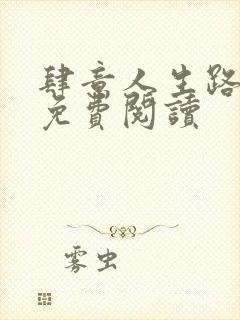 肆音人生路
免費閱讀
雾虫